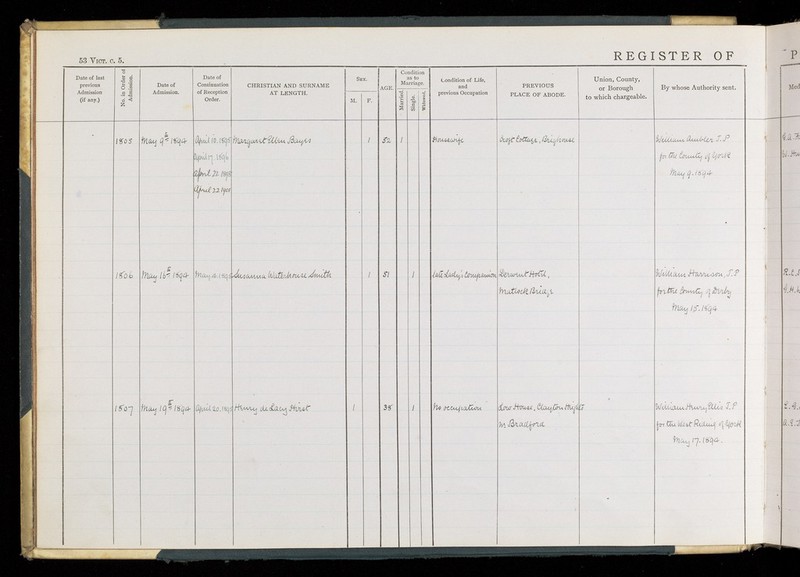 53 VICT. c. 5.
REGISTER OF
Date of last previous Admission (if any.)
No. in Order of Admission.
Date of Admission.
Date of Continuation of Reception Order.
CHRISTIAN AND SURNAME AT LENGTH.
SEX.
M. F.
AGE.
Condition as to Marriage.
Married. Single. Widowed.
Condition of Life, and previous Occupation
PREVIOUS PLACE OF ABODE.
Union, County, or Borough to which chargeable.
By whose Authority sent.
1805 May 9th 1894 Margaret Ellen Bayes 1 52 1 Housewife Croft Cottage, Brighouse William Ambler J.P
April 17. 1896 for the County of York
April 22 1900 May 9. 1894
1806 May 16th 1894 Susanna Waterhouse Smith 1 51 1 late Lady's Companion Derwent Hotel, William Harrison, J.P
Matlock Bridge for the County of Derby
May 15. 1894
1807 May 19th 1894 Henry de Lacy Hirst 1 35 1 No occupation Low House, Clayton William Henry Ellis J.P
Nr Bradford for the West Riding of York
May 17. 1894.